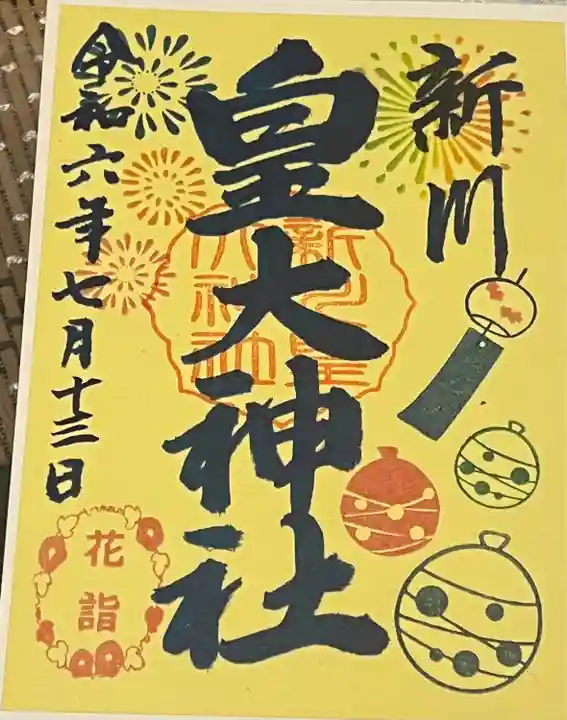 新川
皇大神社
新川皇
大神社
令和六年七月十三日
花
詣